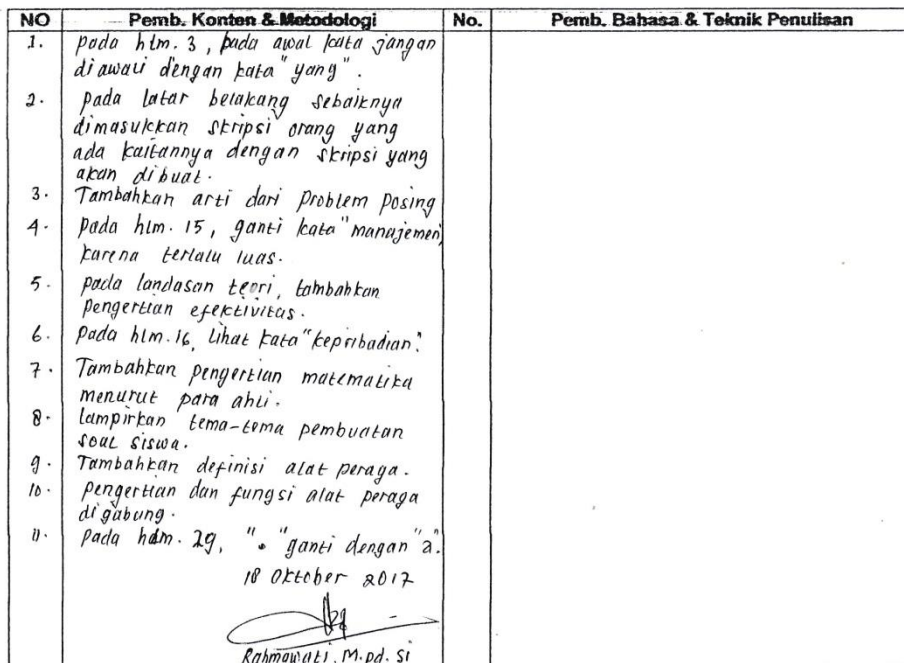 NO Pemb. Konten & Metodologi No. Pemb. Bahasa & Teknik Penulisan
1. pada hlm. 3, pada awal kata jangan
diawali dengan kata "yang".
2. pada latar belakang sebaiknya
dimasukkan skripsi orang yang
ada kaitannya dengan skripsi yang
akan dibuat.
3. Tambahkan arti dari Problem Posing
4. pada hlm. 15, ganti kata "manajemen,
karena terlalu luas.
5. pada landasan teori, tambahkan
pengertian efektivitas.
6. pada hlm. 16, lihat kata "kepribadian".
7. Tambahkan pengertian matematika
menurut para ahli.
8. lampirkan tema-tema pembuatan
soal siswa.
9. Tambahkan definisi alat peraga.
10. pengertian dan fungsi alat peraga
digabung.
11. pada hlm. 29, "•" ganti dengan "a".
18 Oktober 2017
Rahmawati, M.pd. Si